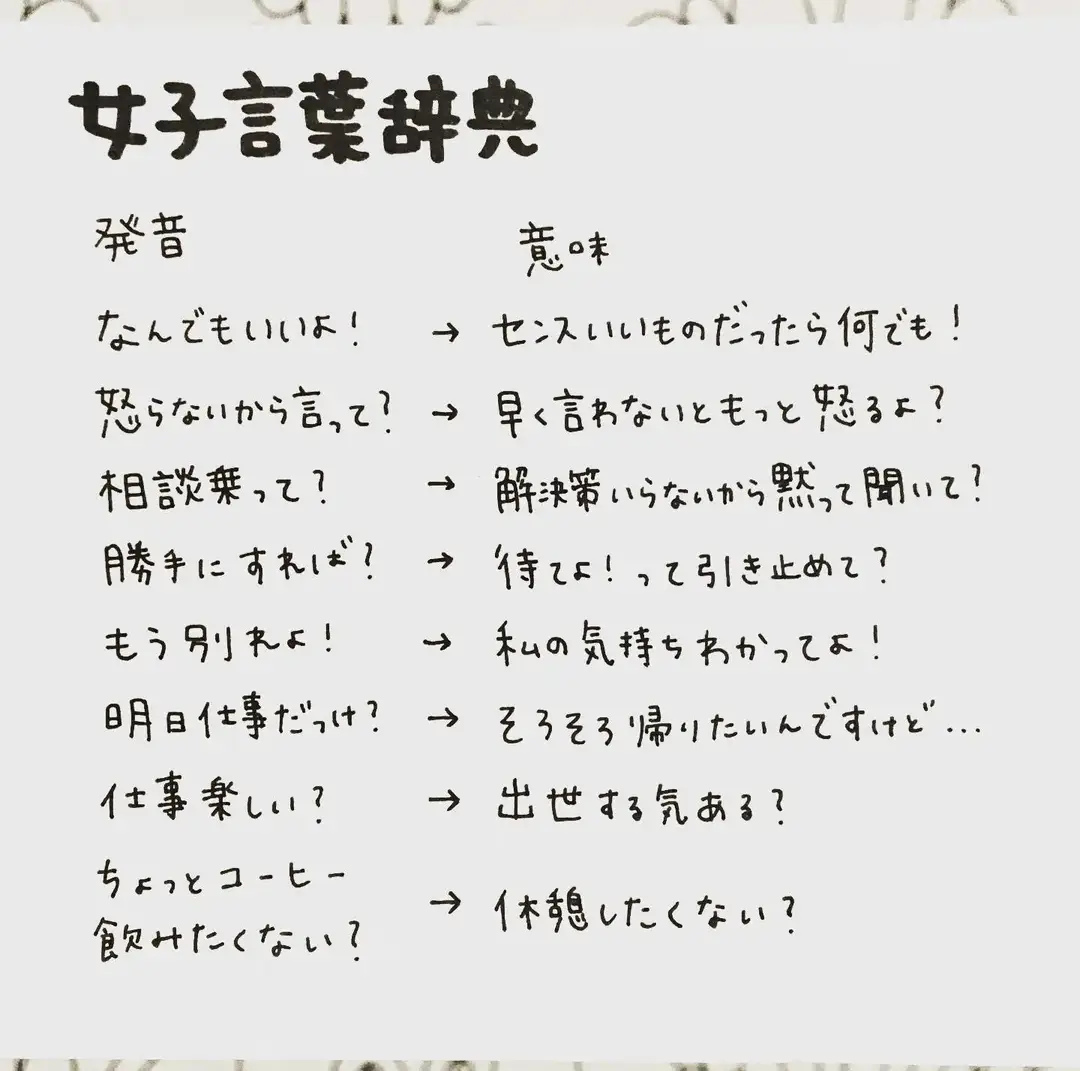 女子言葉辞典
発音 意味
なんでもいいよ! → センスいいものだったら何でも!
怒らないから言って? → 早く言わないともっと怒るよ?
相談乗って? → 解決策いらないから黙って聞いて?
勝手にすれば? → 待てよ!って引き止めて?
もう別れよ! → 私の気持ちわかってよ!
明日仕事だっけ? → そろそろ帰りたいんですけど…
仕事楽しい? → 出世する気ある?
ちょっとコーヒー
飲みたくない? → 休憩したくない?